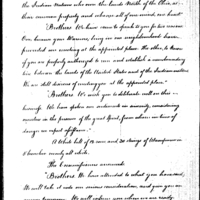 the Indian nations who own the lands North of the Ohio, as
their common property and relieves all of one mind, one heart.
"Brothers We have come to speak to you for two reasons
One, because your Warriors, being in our neighbourhood, have
prevented our meeting at the appointed place. The other, to know
if you are properly authorized to run and establish a new boundary
line between the lands of the United States and of the Indian nations.
We are still desirous of meeting you at the appointed place."
"Brothers. We wish you to deliberate well on this
business. We have spoken our sentiments in sincerity, considering
ourselves in the presence of the great Spirit, from whom in times of
danger we expect assistance."
A White belt of rows and 30 strings of Wampum
black and white.
The Commissioners answered:
"Brothers. We have attended to what you have said,
We will take it into our serious consideration, and give you an
answer tomorrow. We will inform you when we are ready.